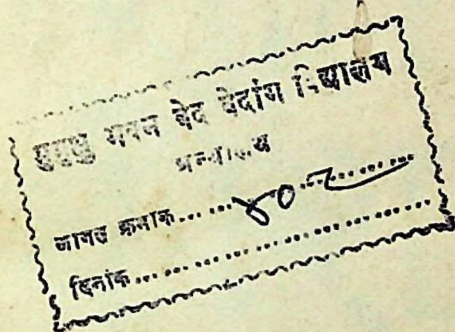 मुमुक्षु भवन वेद वेदांग विद्यालय
ग्रन्थालय
आगत क्रमांक... ४०८
दिनांक...